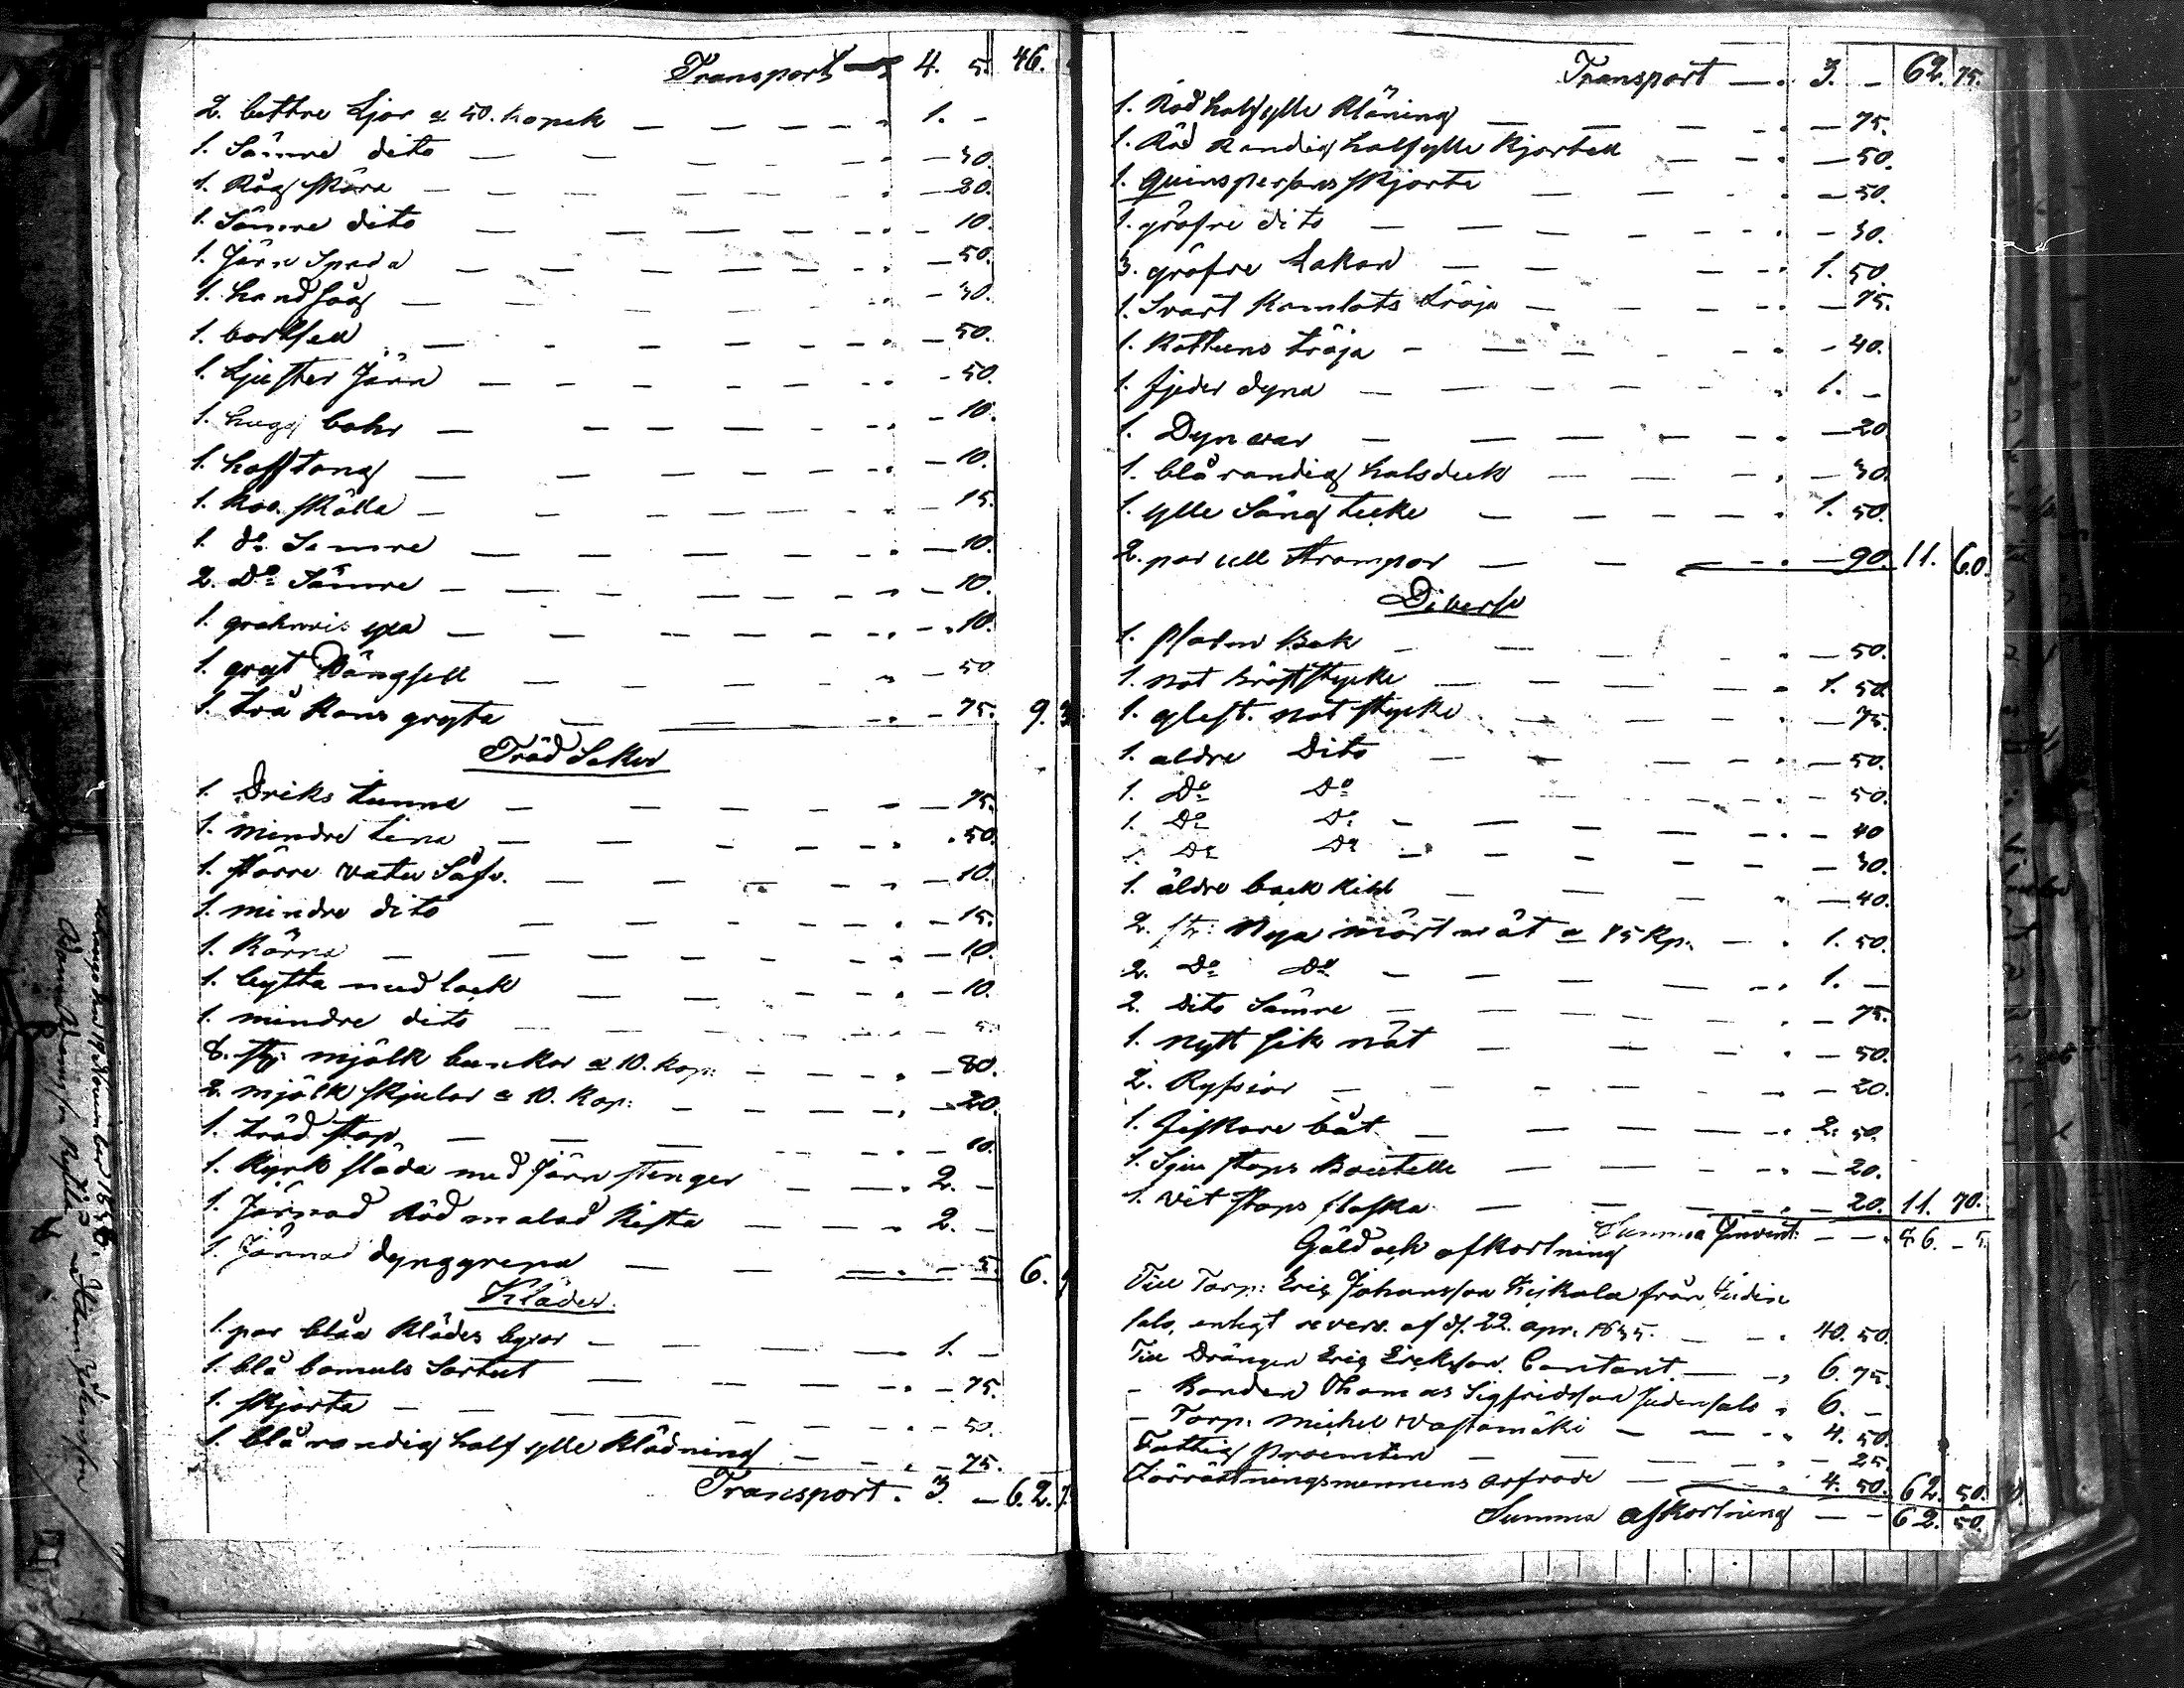 Transport 4. 5. 46.
2. bettre Ljor a 50. kopek — 1. -
1. Sämre dito — 30.
1. Råg skära — 20.
1. Sämre dito — 10.
1. Järn Spada — 50.
1. handsåg — 30.
1. — 50.
1. Ljuster Järn — 50.
1. hugg bohr — 10.
1. hofftång — 10.
1. koo skälla — 15.
1. Do Semre — 10.
2. Do Sämre — 10.
1. yxa — 10.
1. gryt — 50
1. två kans gryta — 75. 9.
Träd Saker
1. Driks tunna — 75.
1. mindre tina — 50.
1. större vatu Så — 10.
1. mindre dito — 15.
1. Kärna — 10.
1. bytta med lock — 10.
1. mindre dito — 5.
8. st: mjölk bunkar a 10. kop: — 80.
2. mjölk skjular a 10. Kop: — 20.
1. träd stop — 10.
1. Kyrk släda med Järn stenger — 2. -
1. Järnad Röd malad Kista — 2. -
1. Järnad dynggrepa — 5. 6.
Kläder.
1. par blåa Klädes byxor — 1. -
1. blå bomuls Sortut — 75.
1. skjorta — 50.
1. blå randig half ylle Klädning — 75.
Transport. 3. — 62.
Transport — 3. - 62. 75.
1. Röd half ylle Kläning — 75.
1. Röd Randig half ylle Kjortell — 50.
1. Quinspersons skjorta — 50.
1. gröfre dito — 30.
3. gröfre Lakan — 1. 50.
1. Svart Kamlots tröja — 75.
1. Kattuns tröja — 40.
1. fjeder dyna — 1. -
1. Dyn war — 20.
1. blå randig halsduk — 30.
1. ylle Säng tecke — 1. 50.
2. par ull strumpor — 90. 11. 60.
Diverse
1. Psalm Bok — 50.
1. not bröststycke — 1. 50.
1. glest. not stycke — 75.
1. äldre Dito — 50.
1. Do Do — 50.
1. Do Do — 40
1. Do Do — 30.
1. äldre — 40.
2. st: Nya mört nät a 75 Kp. — 1. 50.
2. Do Do — 1. —
2. Dito Sämre — 75.
1. nytt sik nät — 50.
2. Rysior — 20.
1. fiskare båt — 2. 50.
1. Sju stops Boutelle — 20.
1. vit stops flaska — 20. 11. 70.
Summa Invent: — 86. - 5.
Gäld och afkortning
Till Torp: Eric Johansson från
salo, enligt revers. af d. 22. apr. 1835. — 40. 50.
Till Drängen Eric Ericksson Contant. — 6. 75.
- Bonden Thomas Sigfridsson Judensalo 6. -
- Torp: Michel — 4. 50.
Fattig procenten — 25.
Förrättningsmennens arfvode — 4. 50. 62. 50.
Summa afkortning — 62. 50.